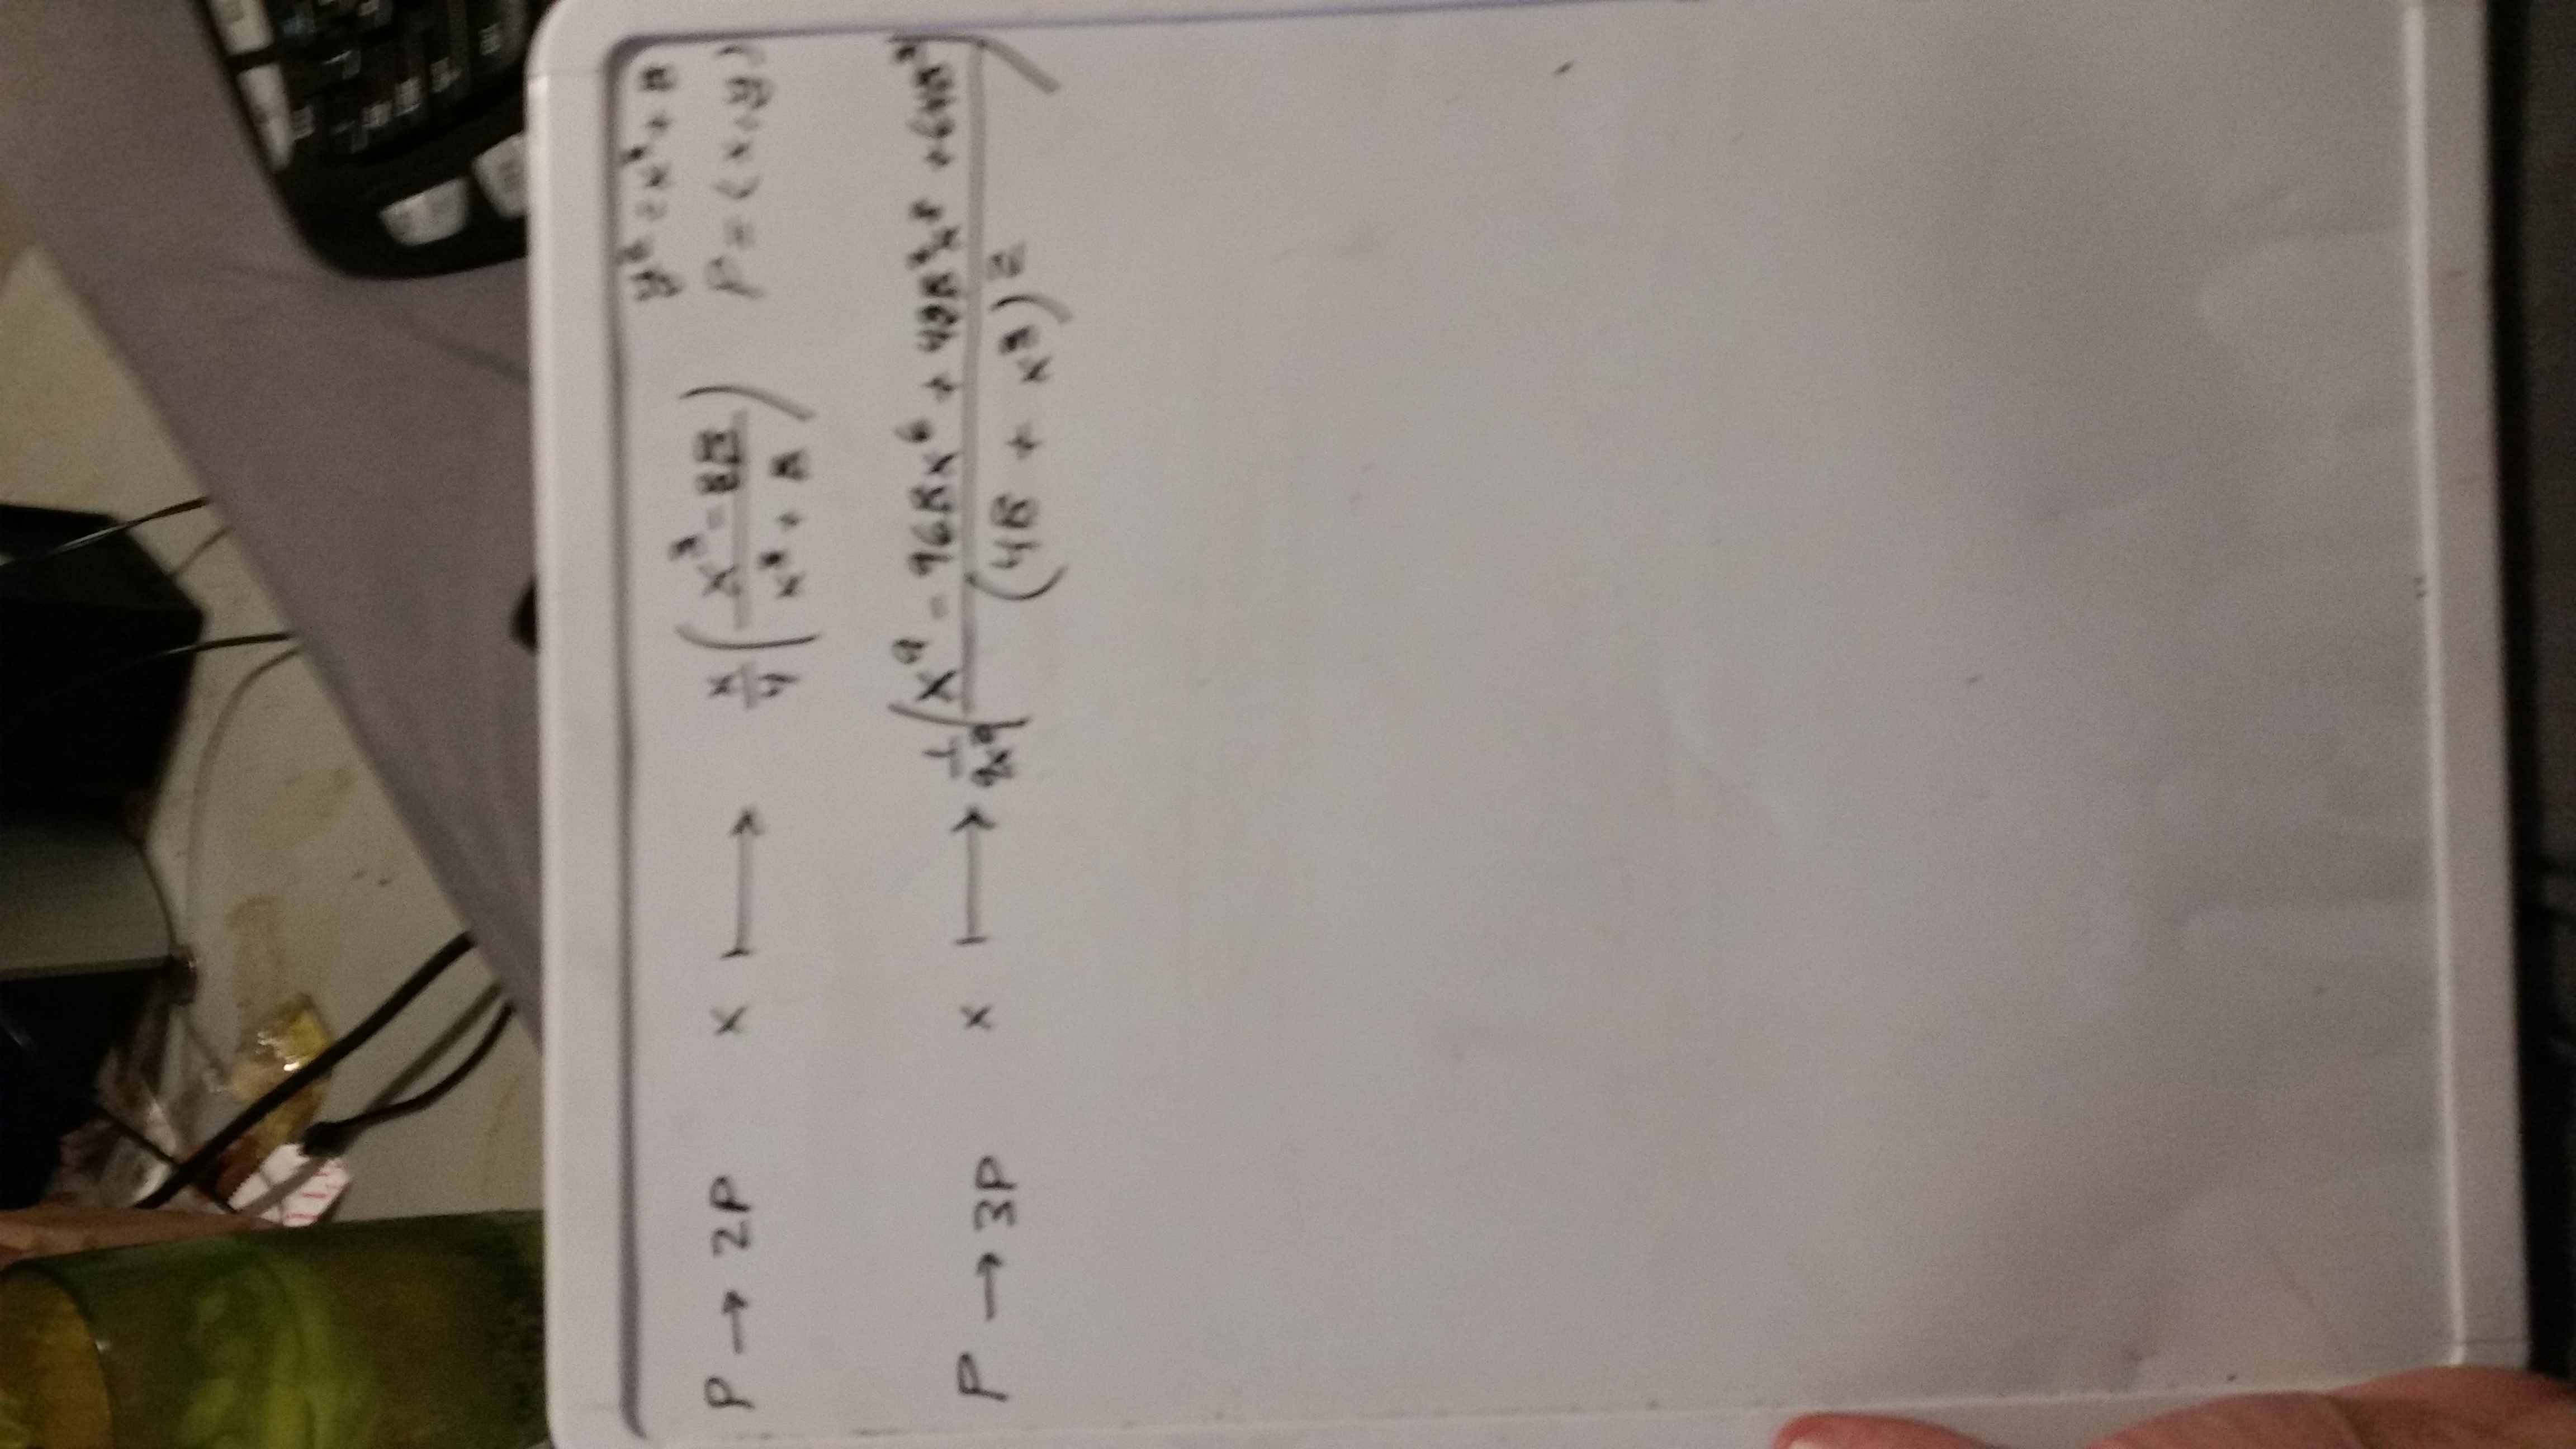 y² = x³ + B
P → 2P x ⟼ x/4 ( (x³ - 8B) / (x³ + B) ) P = (x, y)
P → 3P x ⟼ 1/9x² ( (x⁹ - 96Bx⁶ + 48B²x³ + 64B³) / (4B + x³)² )